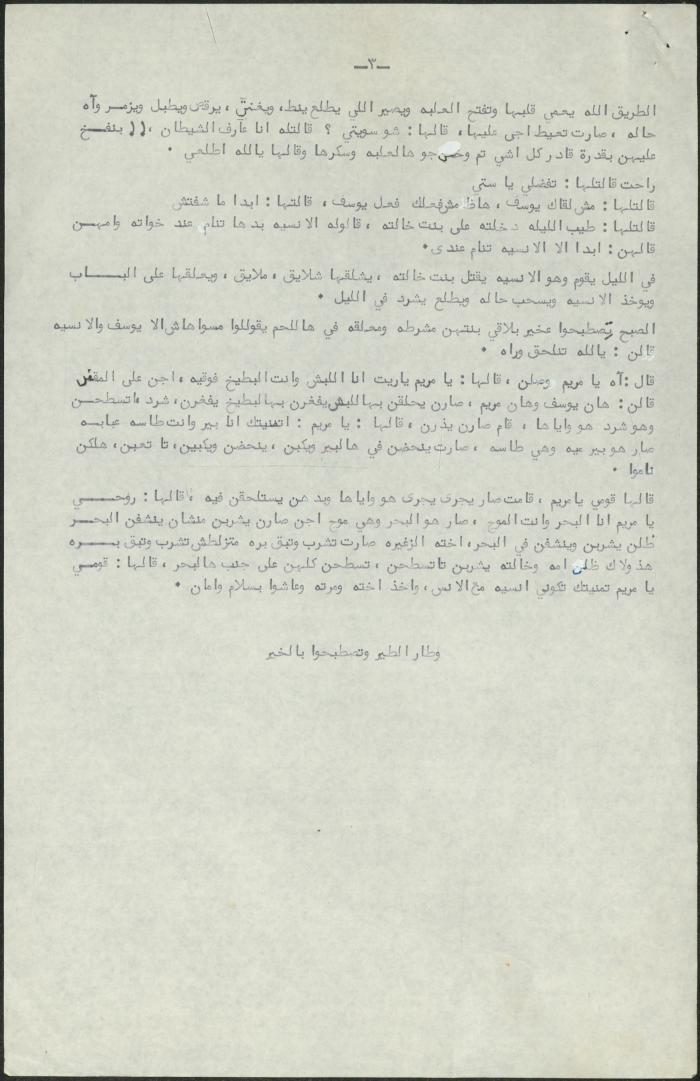 ــ٣ــ
الطريق الله يعمي قلبها وتفتح العلبه ويصير اللي يطلع ينط، ويغني ، يرقص ويطبل ويزمر وآه
حاله ، صارت تعيط اجى عليها، قالها : شو سويتي ؟ قالتله انا عارف الشيطان ،(( بنفـــخ
عليهن بقدرة قادر كل اشي تم وحو جو هالعلبه وسكرها وقالها يالله اطلعي .
راحت قالتلها : تفضلي يا ستي
قالتلها : مش لقاك يوسف ، هاظا مش فعلك فعل يوسف ، قالتها : ابدا ما شفتش
قالتلها : طيب الليله دخلته على بنت خالته ، قالوله الانسيه بدها تنام عند خواته وامهــن
قالهن : ابدا الا الانسيه تنام عندى .
في الليل يقوم وهو الانسيه يقتل بنت خالته ، يشلقها شلايق ، ملايق ، ويعلقها على البـــاب
ويوخذ الانسيه ويسحب حاله ويطلع يشرد في الليل .
الصبح يصطبحوا عخير بلاقي بنتهن مشرطه ومعلقه في هاللحم يقوللوا مسواهاش الا يوسف والانسيه
قالن : يالله تنلحق وراه .
قال :آه يا مريم وصلن ، قالها : يا مريم ياريت انا اللبش وانت البطيخ فوقيه ، اجن على المقش
قالن : هان يوسف وهان مريم ، صارن يحلقن بهاللبش يفغرن بهالبطيخ يفغرن، شرد ، اتسطحــن
وهو شرد هو واياها ، قام صارن يذرن ، قالها : يا مريم : اتمنيتك انا بير وانت طاسه عبابه
صار هو بير ميه وهي طاسه ، صارت ينحضن في هالبير ويكبن ، ينحضن ويكبين، تا تعبن ، هلكن
ناموا .
قالها قومي يا مريم ، قامت صار يجرى يجرى هو واياها وبدهن يستلحقن فيه ، قالها : روحـــي
يا مريم انا البحر وانت الموج ، صار هو البحر وهي موج اجن صارن يشربن منشان ينشفن البحــر
ظلن يشربن وينشفن في البحر، اخته الزغيره صارت تشرب وتبق بره متزلطش تشرب وتبق بـــره
هذولاك ظلن امه وخالته يشربن تا تسطحن ، تسطحن كلهن على جنب هالبحر ، قالها : قومــي
يا مريم تمنيتك تكوني انسيه مع الانس، واخذ اخته ومرته وعاشوا بسلام وامان .
وطار الطير وتصطبحوا بالخير